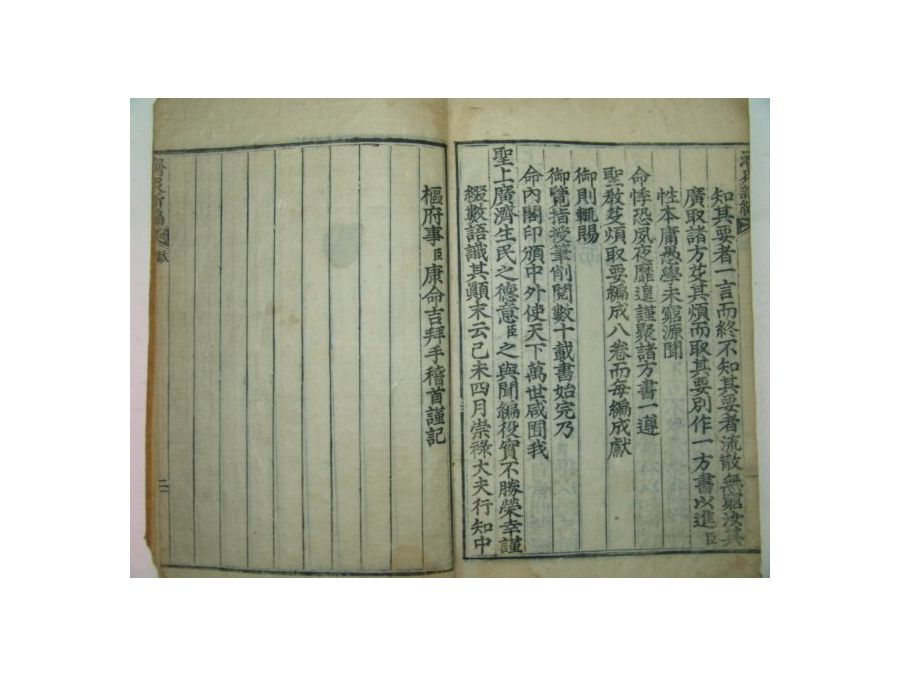 知其要者一言而終不知其要者流散無窮汝其
廣取諸方芟其煩而取其要別作一方書以進臣
性本庸愚學未窮源聞
命悸恐夙夜靡遑謹聚諸方書一遵
聖教芟煩取要編成八卷而每編成獻
御則輒賜
御覽指授筆削閱數十載書始完乃
命內閣印頒中外使天下萬世咸囿我
聖上廣濟生民之德意臣之與聞編役實不勝榮幸謹
綴數語識其顚末云己未四月崇祿大夫行知中
樞府事臣康命吉拜手稽首謹記
濟民新編
跋
二